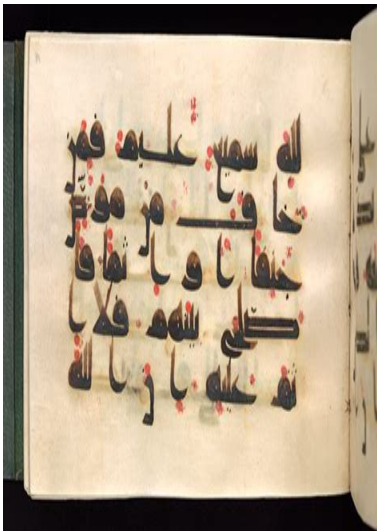 لله سميع عليم فمن
خاف من موص
جنفا او اثما فا
صلح بينهم فلا ا
ثم عليه ان الله